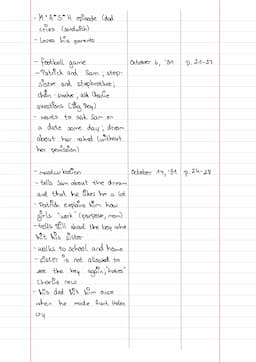 - M*A*S*H episode (dad
cries (sandwich)
- loves his parents
- football game October 6, '91 p. 21-23
- Patrick and Sam; step-
sister and stepbrother;
chain-smoke, ask Charlie
questions (Big Boy)
- wants to ask Sam on
a date some day; dream
about her naked (without
her permission)
- masturbation October 14, '91 p. 24-28
- tells Sam about the dream
and that he likes her a lot
- Patrick explains him how
girls "work" (purpose, mom)
- tells Bill about the boy who
hit his sister
- walks to school and home
- sister is not allowed to
see the boy again; hates
Charlie now
- his dad hit him once
when he made Aunt Helen
cry